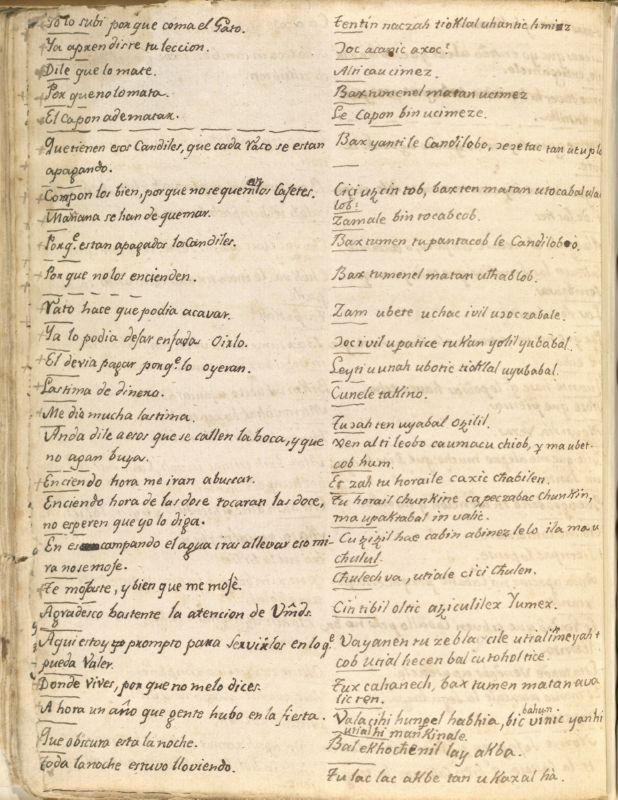 Yo lo subi porque coma el Gato. Tentin naczah tioklal uhantic hmiz
Ya aprendiste tu leccion. Ɔoc acanic axoc?
Dile que lo mate. Alti caucimez.
Porque no lo mata. Baxtumenel matan ucimez
El Capon ade matar. Le Capon bin ucimeze.
Que tienen esos Candiles, que cada rato se estan Bax yanti le Candilobo,
apagando.
Componlos bien, porque no se quem los Cafetes. Cici uɔcin tob, baxten matan utocabal
lob:
Mañana se han de quemar. Zamale bin tocabcob.
Porq.e estan apagados los Candiles. Baxtumen tupantacob le Candilobo.
Porque no los encienden. Bax tumenel matan uthablob.
Rato hace que podia acavar. Zam ubete uchac ivil uɔoczabale.
Ya lo podia dejar enfada oirlo. Ɔoc ivil upatice tukan yolil yubabal.
El devia pagar porq.e lo oyeran. Leyti uunah ubotic tioklal uyubabal.
Lastima de dinero. Cunele takino.
Me dio mucha lastima. Tuɔah ten uyabal oɔilil.
Anda dile a esos que se callen la boca, y que xen alti leobo caumacu chiob, y ma ubet-
no agan buya. cob hum.
Enciendo hora me iran abuscar. Et zah tu horaile caxic chabilen.
Enciendo hora de las dose tocaran las doce, Tu horail chunkine capeczabac chunkin,
no esperen que yo lo diga. ma upaktabal in valic.
En escampando el agua iras allevar eso mi- Cuɔiɔil hae cabin abinez lelo ila ma u
ra no se moje. chulul.
Te mojaste, y bien que me mojè. Chulech va, utiale cici chulen.
Agradesco bastente la atencion de Vm̃ds. Cintibil oltic aɔiculilex Yumex.
Aqui estoy prompto para servirlos en lo q.e Vayanen tu zebla cile utial
pueda Valer. cob utial hecen bal cutoholtice.
Donde vives, porque no melo dices. Tux cahanech, bax tumen matan ava
lic ten.
A hora un año que gente hubo en la fiesta. Valacihi hunpel habhia, bic bahun vinic yanhi
utialhi mankinale.
Que obscura esta la noche. Bal ekhochenil lay akba.
Toda la noche estuvo lloviendo. Tu lac lac akbe tan ukaxal hà.